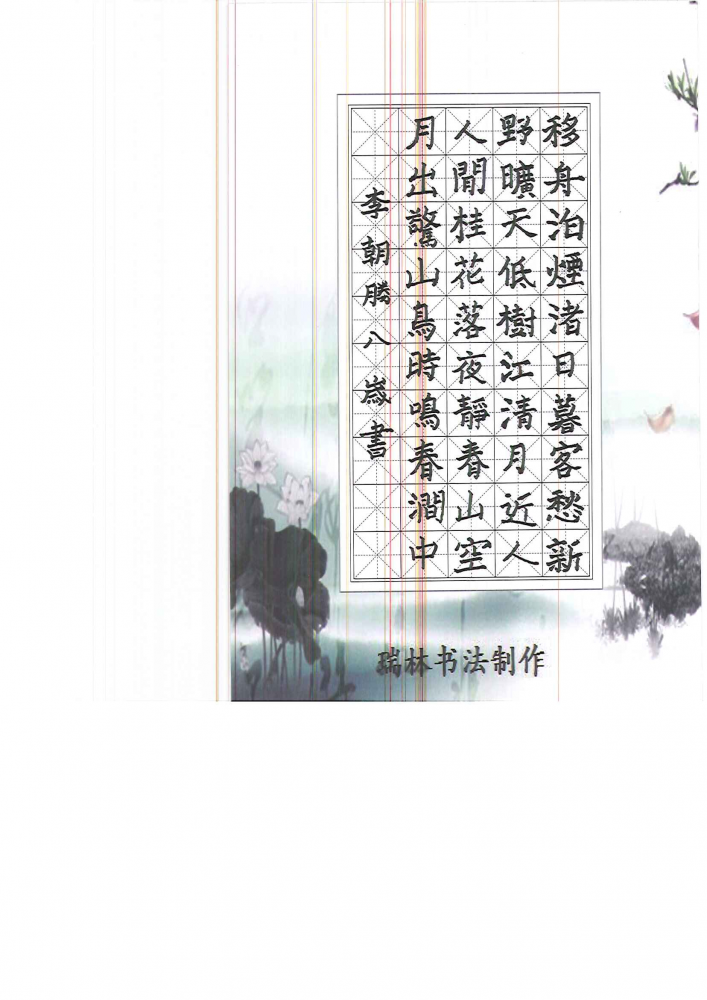 移舟泊煙渚日暮客愁新
野曠天低樹江清月近人
人閒桂花落夜靜春山空
月出驚山鳥時鳴春澗中
李朝勝八歲書
瑞林书法制作